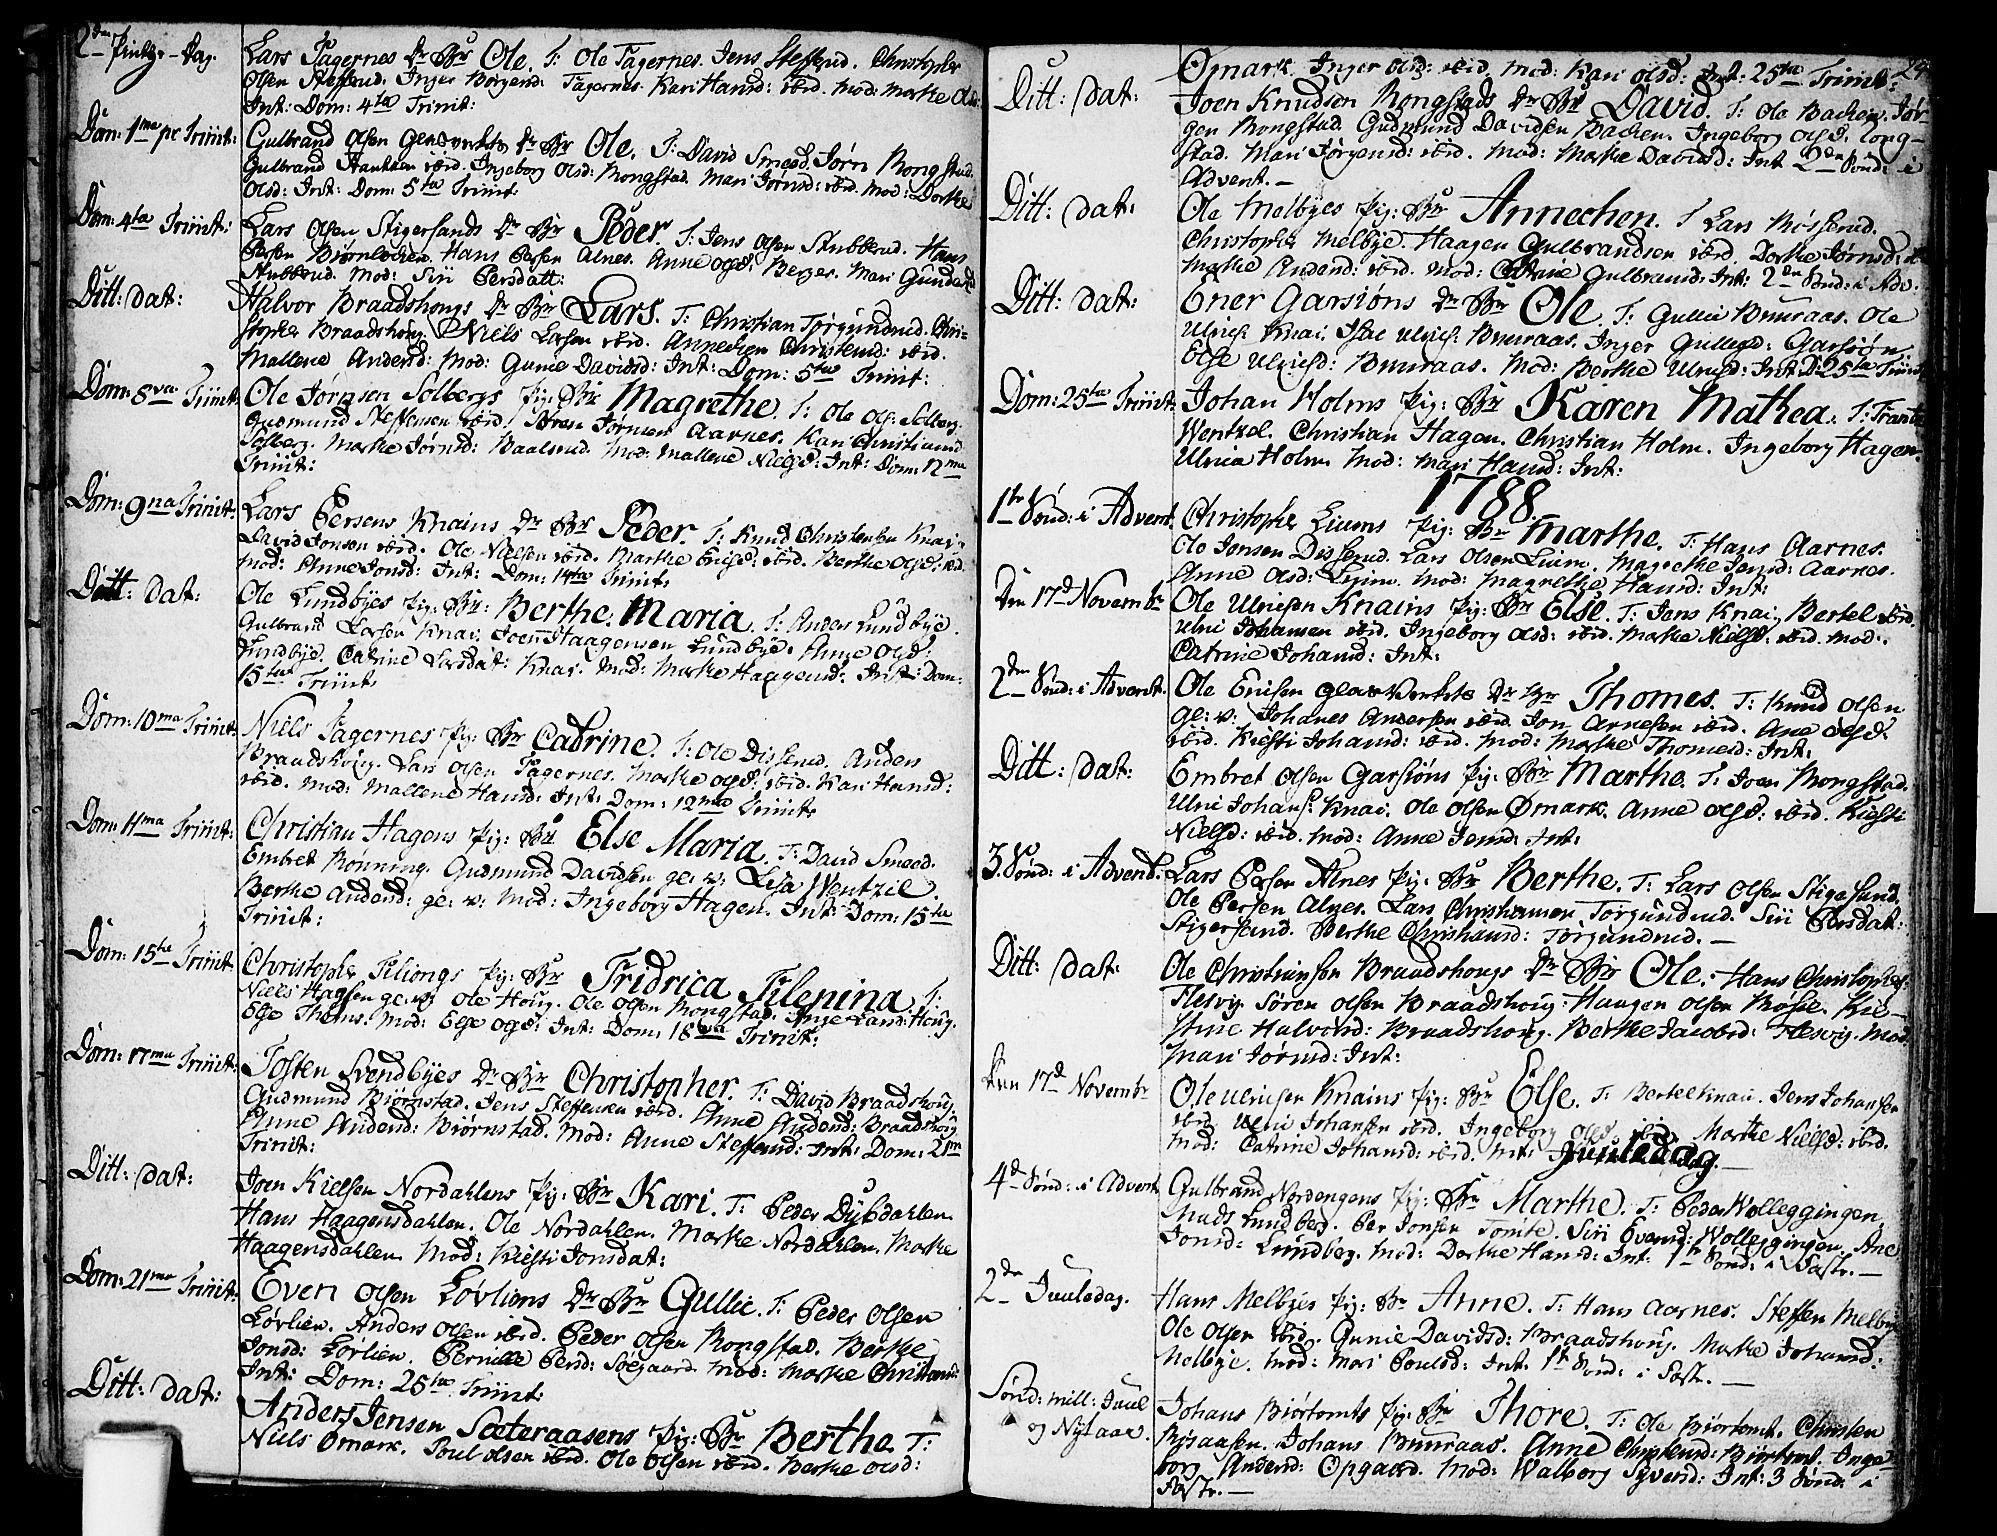 2den Pintz-Dag.
Lars Tagernes Dr Br Ole. T: Ole Tagernes. Jens Steffrud. Christopher
Olsen Steffrud. Inger Børgend: Tagernes. Kari Hansd: ibid. mod: Marthe Olsd:
Int: Dom: 4ta Trinit:
Dom: 1ma pr Trinit:
Gulbrand Olsen Glasverkets Dr Br Ole. T: David Smeed. Jørn Rongstad.
Gulbrand ibid. Ingeborg Olsd: Rongstad. Mari Jørnsd: ibid. Mod: Dorthe
Olsd: Int: Dom: 5ta Trinit:
Dom: 4ta Trinit:
Lars Olsen Stigersands Dr Br Peder. T: Jens Olsen Stubberud. Hans
Persen Hans Persen Alnes. Anne Olsd: Berger. Mari
Stubberud. Mod: Siri Persdatt:
Ditt: Dat:
Halvor Braadshougs Dr Br Lars. T: Christian Torgundrud. Chri-
stopher Braadshoug. Niels Larsen ibid. Annechen Christensd: ibid.
Mallene Andersd: Mod: Gunie Davidsd: Int: Dom: 5ta Trinit:
Dom: 8va Trinit:
Ole Jørgensen Solbergs Pig: Br Magrethe. T: Ole Ols: Solberg.
Gudmund Steffensen ibid. Jørnsen Aarnes. Kari Christiansd
Solberg. Marthe Jørnsd: Baalsrud. Mod: Mallene Nielsd: Int: Dom: 12ma
Trinit:
Dom: 9na Trinit:
Lars Persens Knains Dr Br Peder. T: Knud Christensen Knai.
David Jonsen ibid. Ole Nielsen ibid. Marthe Ericsd: ibid. Berthe Olsd: ibid.
Mod: Anne Jonsd: Int: Dom: 14ta Trinit:
Ditt: Dat:
Ole Lundbyes Pig: Br: Berthe Maria. T: Anders Lundbye.
Gulbrand Larsen Knai. Joen Haagensen Lundbye. Anne Olsd:
Lundbye. Catrine Larsdat: Knai. Mod: Marthe Haagensd: Int: Dom:
15ta Trinit:
Dom: 10ma Trinit:
Niels Tagernes Pig: Br Catrine. T: Ole Disserud. Anders
Braadshoug. Lars Olsen Tagernes. Marthe Olsd: ibid. Kari Hansd:
ibid. Mod: Mallene Hansd: Int: Dom: 12ma Trinit:
Dom: 11ma Trinit:
Christian Hagens Pig: Br Else Maria. T: David Smeed.
Embret Rønning. Gudmund Davidsen gl: v: Lisa Wentzel.
Berthe Andersd: gl: v: Mod: Ingeborg Hagen. Int: Dom: 15ta
Trinit:
Dom: 15ta Trinit:
Christopher Filiongs Pig: Br Fridrica Filenina. T:
Niels Hansen gl: v: Ole Houg. Ole Olsen Rongstad. Houg.
Else Mod: Else Olsd: Int: Dom: 18va Trinit:
Dom: 17ma Trinit:
Tosten Svendbyes Dr Br Christopher. T: David Braadshoug.
Gudmund Biørnstad. Jens Steffensen ibid. Anne Andersd: Braadshoug.
Anne Andersd: Biørnstad. Mod: Anne Steffensd: Int: Dom: 21ma
Trinit:
Ditt: Dat:
Joen Kielsen Nordahlens Pig: Br Kari. T: Peder Dybdahlen.
Hans Haagensdahlen. Ole Nordahlen. Marthe Nordahlen. Marthe
Haagensdahlen. Mod: Kiersti Jonsdat:
Dom: 21ma Trinit:
Even Olsen Løvliens Dr Br Gullic. T: Peder Olsen
Løvlien. Anders Olsen ibid. Peder Olsen Rongstad. Berthe
Jonsd: Løvlien. Pernille Persd: Søegaard. Mod: Marthe Christiansd:
Int: Dom: 25ta Trinit:
Ditt: Dat:
Anders Jensen Sæteraasens Pig: Br Berthe. T:
Niels Ømark. Poul Olsen ibid. Ole Olsen ibid. Berthe Olsd:
Ømark. Inger Olsd: ibid. Mod: Kari Olsd: Int: 25ta Trinit:
Ditt: Dat:
Joen Knudsen Rongstads Dr Br David. T: Ole Bachen. Jør-
gen Rongstad. Gudmund Davidsen Bachen. Ingeborg Olsd: Rong-
stad. Mari Jørgensd: ibid. Mod: Marthe Davidsd: Int 2den Sønd: i
Advent.
Ditt: Dat:
Ole Melbyes Pig: Br Annechen. T: Lars
Christopher Melbye. Haagen Gulbrandsen ibid. Dorthe Jørnsd:
Marthe Andersd: ibid. Mod: Catrine Gulbrandsd: Int: 2den Sønd: i Adv:
Ditt: Dat:
Ener Garsiøns Dr Br Ole. T: Gullic Buuraas. Ole
Ulrics: Knai. Isac Ulrics: Buuraas. Inger Gullicsd: Garsiøn
Else Ulricsd: Buuraas. Mod: Berthe Ulricsd: Int: D: 25ta Trinit
Dom: 25ta Trinit:
Johan Holms Pig: Br Karen Mathea. T: Frantz
Wentzel. Christian Hagen. Christian Holm. Ingeborg Hagen.
Ulrica Holm. Mod: Mari Hansd: Int:
1788.
1te Sønd: i Advent
Christopher Liums Pig: Br Marthe. T: Hans Aarnes.
Ole Jonsen Disserud. Lars Olsen Lium. Magrethe Jensd: Aarnes.
Anne Olsd: Lium. Mod: Magrethe Hansd: Int:
Den 17d Novembr
Ole Ulricsen Knains Pig: Br Else. T: Jens Knai. Bertel ibid.
Ulric Johansen ibid. Ingeborg Olsd: ibid. Marthe Nielsd: ibid. Mod:
Catrine Johansd: Int:
2den Sønd: i Advent.
Ole Ericsen Glasverkets Dr Br Thomes. T: Knud Olsen
gl: v: Johanes Andersen ibid. Jon Arnesen ibid. Ane Olsd:
ibid. Kiersti Johansd: ibid. Mod: Marthe Thomesd: Int:
Ditt: Dat:
Embret Olsen Garsiøns Pig: Br Marthe. T: Joen Rongstad.
Ulric Johans: Knai. Ole Olsen Ømark. Anne Olsd: ibid. Kiersti
Nielsd: ibid. Mod: Anne Jensd: Int:
3 Sønd: i Advend:
Lars Persen Alnes Pig: Br Berthe. T: Lars Olsen Stigersand.
Ole Persen Alnes. Lars Christiansen Torgundrud. Siri Persdat:
Stigersand. Berthe Christiansd: Torgundrud.
Ditt: Dat:
Ole Christiansen Braadshougs Dr Br Ole. Hans Christophers:
Flesvig. Søren Olsen Braadshoug. Haagen Olsen Kie-
stine Halvorsd: Braadshoug. Berthe Jacobsd: Flesvig. Mod:
Mari Jørnsd: Int:
Den 17d Novembr
Ole Ulricsen Knains Pig: Br Else. T: Bertel Knai. Jens Johansen
ibid. Ulric Johansen ibid. Ingeborg Olsd: ibid. Marthe Nielsd: ibid.
Mod: Catrine Johansd: ibid. Int: Juuledag.
4d Sønd: i Advent
Gulbrand Nordengens Pig: Br Marthe. T: Peder Wolleggingen.
Mads Lundberg. Per Jonsen Tomte. Siri Evensd: Wolleggingen. Ane
Jonsd: Lundbeg. Mod: Dorthe Hansd: Int: 1te Sønd: i Faste.
2den Juuledag.
Hans Melbyes Pig: Br Anne. T: Hans Aarnes. Steffen Melbye
Ole Olsen ibid. Gunie Davidsd: Braadshoug. Marthe Johansd:
Melbye. Mod: Mari Poulsd: Int: 1te Sønd: i Faste.
Sønd: mell: Juul
og Nytaar.
Johans Biørtomts Pig: Br Thore. T: Ole Biørtomt. Christen
Johans Buuraas. Anne Christensd: Biørtomt. Inge-
borg Andersd: Opgaard. Mod: Walborg Syversd: Int: 3 Sønd: i
Faste.